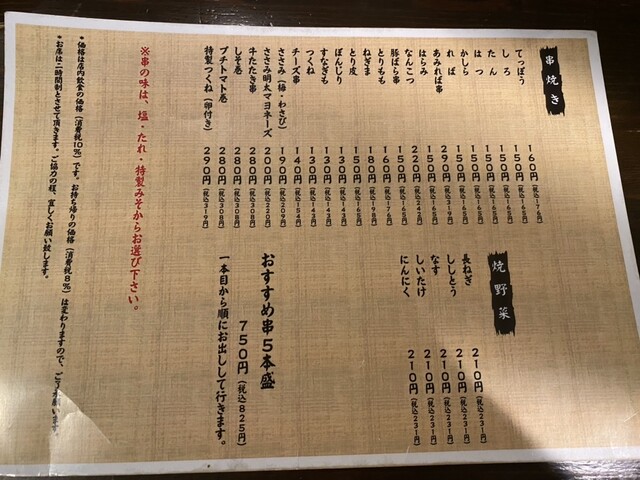 串焼き
てっぽう 160円(税込176円)
しろ 150円(税込165円)
たん 150円(税込165円)
はつ 150円(税込165円)
かしら 150円(税込165円)
れば 150円(税込165円)
あみれば串 290円(税込319円)
はらみ 150円(税込165円)
なんこつ 220円(税込242円)
豚ばら串 150円(税込165円)
とりもも 160円(税込176円)
ねぎま 180円(税込198円)
とり皮 150円(税込165円)
ぼんじり 130円(税込143円)
すなぎも 130円(税込143円)
つくね 130円(税込143円)
チーズ串 140円(税込154円)
ささみ(梅・わさび) 190円(税込209円)
ささみ明太マヨネーズ 200円(税込220円)
牛たたき串 280円(税込308円)
しそ巻 280円(税込308円)
プチトマト巻 280円(税込308円)
特製つくね(卵付き) 290円(税込319円)
焼野菜
長ねぎ 210円(税込231円)
ししとう 210円(税込231円)
なす 210円(税込231円)
しいたけ 210円(税込231円)
にんにく 210円(税込231円)
おすすめ串5本盛
750円(税込825円)
一本目から順にお出しして行きます。
※串の味は、塩・たれ・特製みそからお選び下さい。
●価格は店内飲食の価格(消費税10%)です。お持ち帰りの価格(消費税8%)は変わりますので、ご了承願います。
●お席は二時間制とさせて頂きます。ご協力の程、宜しくお願い致します。